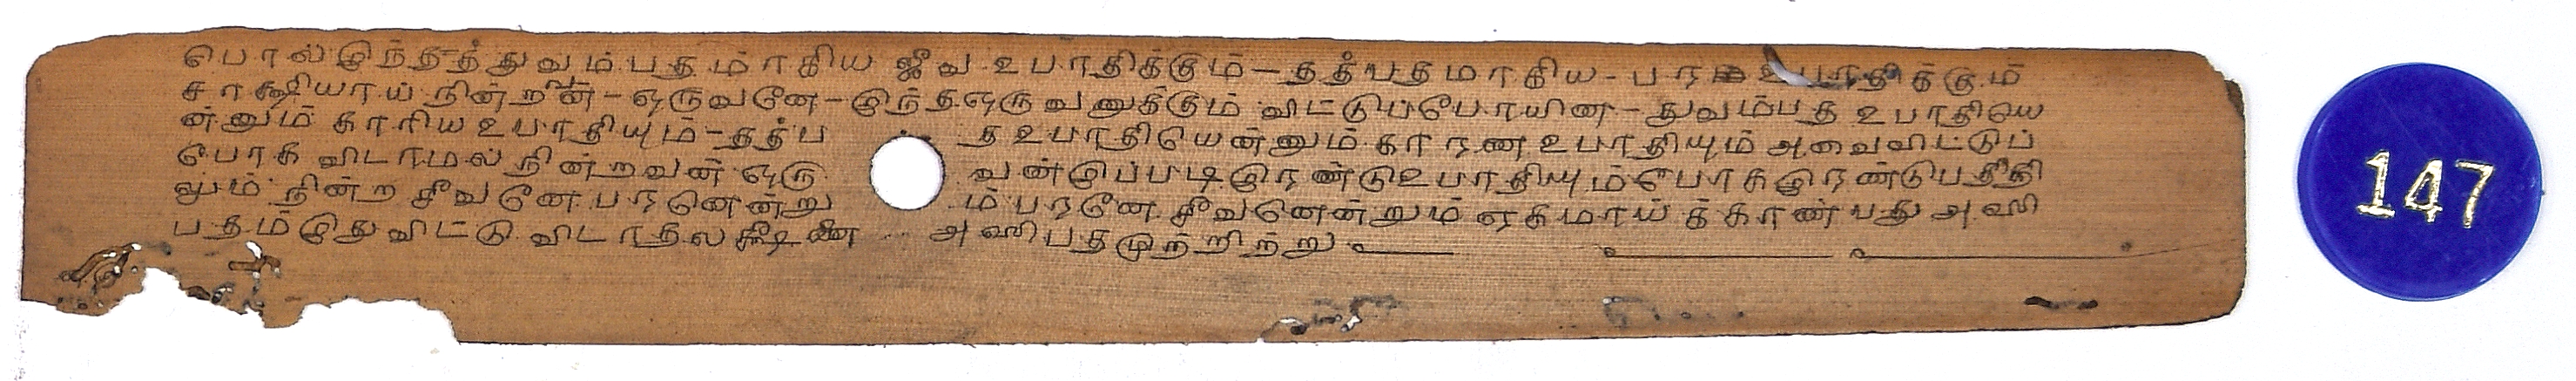 பொலஇந்தத்துவம்பதமாகிய ஜீவ உபாதிக்கும் – தத்பதமாகிய - பரஉபாதிக்கும்
சாக்ஷியாய் நின்றான் – ஒருவனே – இந்தஒருவனுக்கும் விட்டுப்போயின – துவம்பத உபாதியெ
ன்னும் காரிய உபாதியும் – தத்ப த உபாதியென்னும் காரண உபாதியும் அவைவிட்டுப்
போக விடாமல் நின்றவன் ஒரு வன்இப்படிஇரண்டுஉபாதியும்போகஇரண்டுபதத்தி
லும் நின்ற சீவனே பரனென்று ம் பரனே சீவனென்றும் ஏகமாய்க்காண்பது அஸி
பதம்இதுவிட்டு விடாத அஸிபதமுற்றிற்று
147